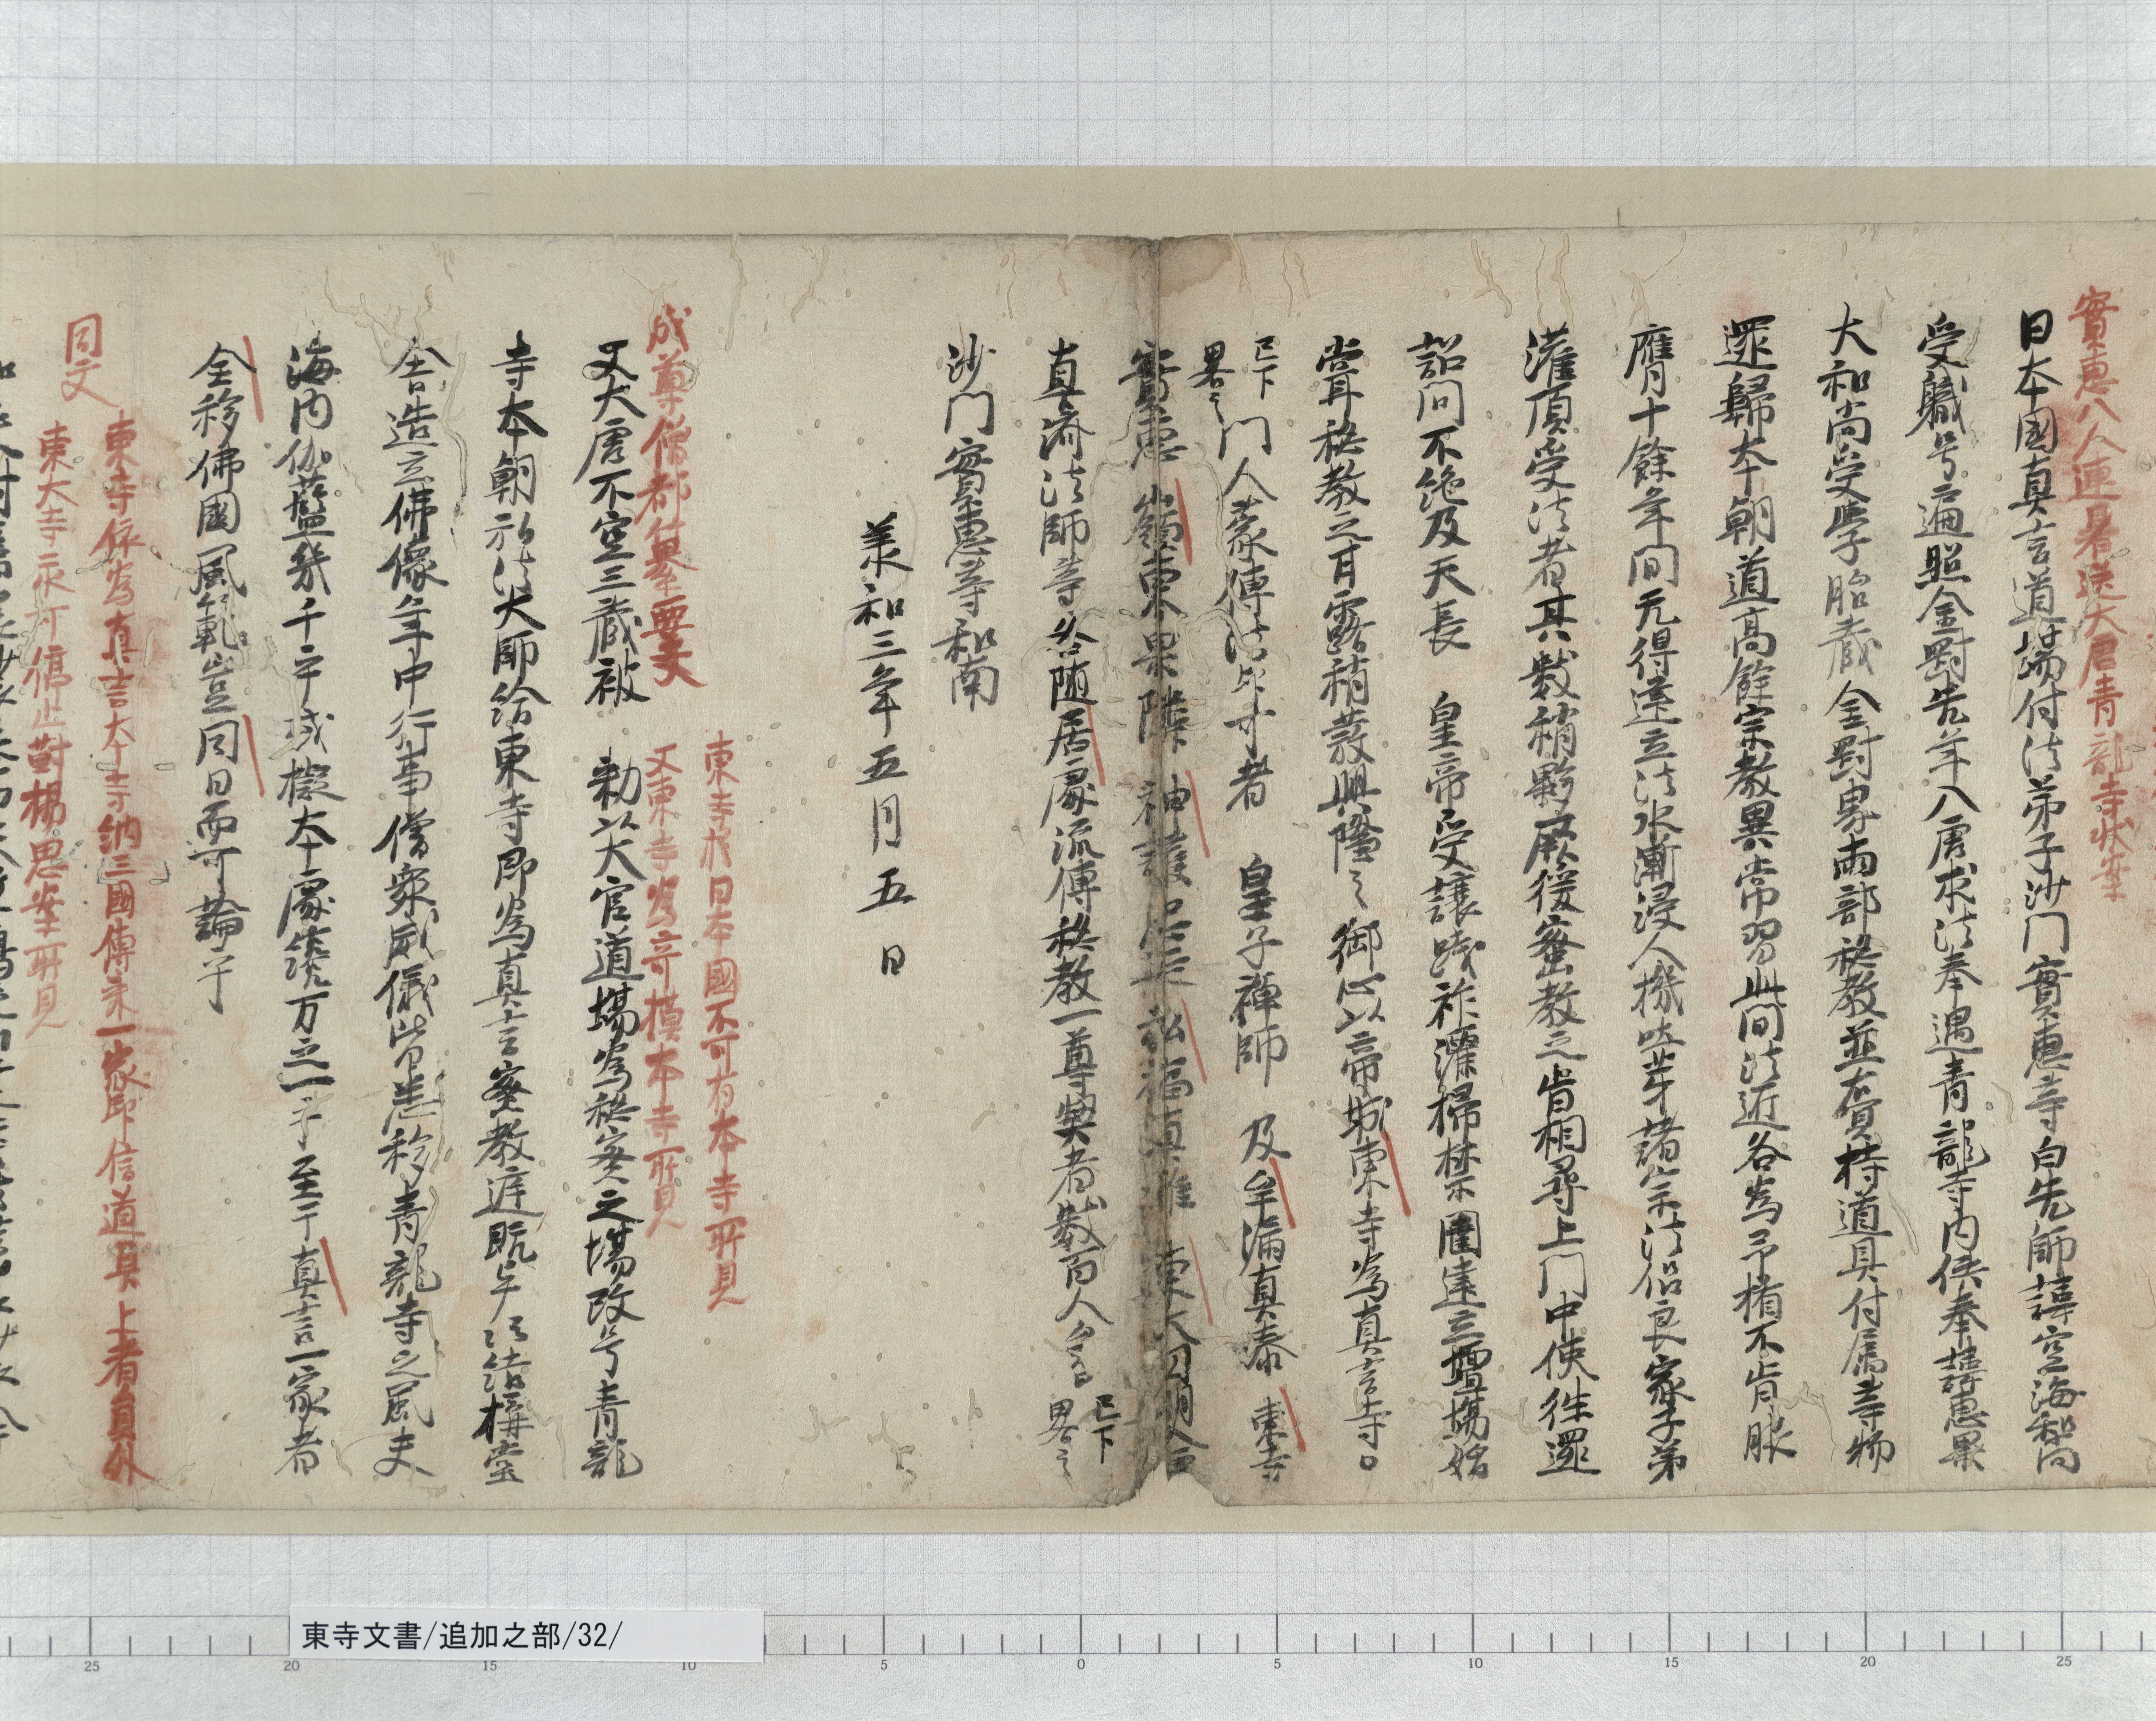 實惠八人連署送大唐青龍寺状案
日本國真言道場付法弟子沙門實惠等白先師諱空海和尚
受職号遍照金剛先年入唐求法奉遇青龍寺内供奉諱惠果
大和尚受學胎蔵金剛界兩部秘教並賷持道具付属等物
還歸本朝道高餘宗教異常習此間法匠各為矛楯不肯服
膺十餘年間无得建立法水漸浸人機吐芽諸宗法侶良家子弟
灌頂受法者其數稍夥厥後密教之旨相尋上門中使往還
詔問不絶及天長　皇帝受譲踐祚灑掃禁闈建立壇場始
甞秘教之甘露稍發興隆之御心以帝城東寺為真言寺。
已下
畧之
門人蒙傳法印可者　皇子禪師　及牟漏真泰　東寺
實惠　嶺東杲隣　神護忠延　弘福真雅　東大圓明入唐
真済法師等各随居處流傳秘教一尊契者數百人
已下
畧之
沙門實惠等和南
美和三年五月五日
東寺於日本國不可有本寺所見
又東寺為竒摸本寺所見
成尊僧都纂要文
又大唐不空三蔵被　勅以大官道場為秘密之場改号青龍
寺本朝弘法大師給東寺即為真言密教庭既乍結構堂
舎造立佛像年中行事僧衆威儀皆悉移青龍寺之風夫
海内伽藍幾千乎或擬本處縡万之一乎至于真言一家者
全移佛國風範豈同日而可論乎
東寺依為真言本寺納三國傳来一家印信道具上者自外
東大寺永可停止對揚思案所見
同文